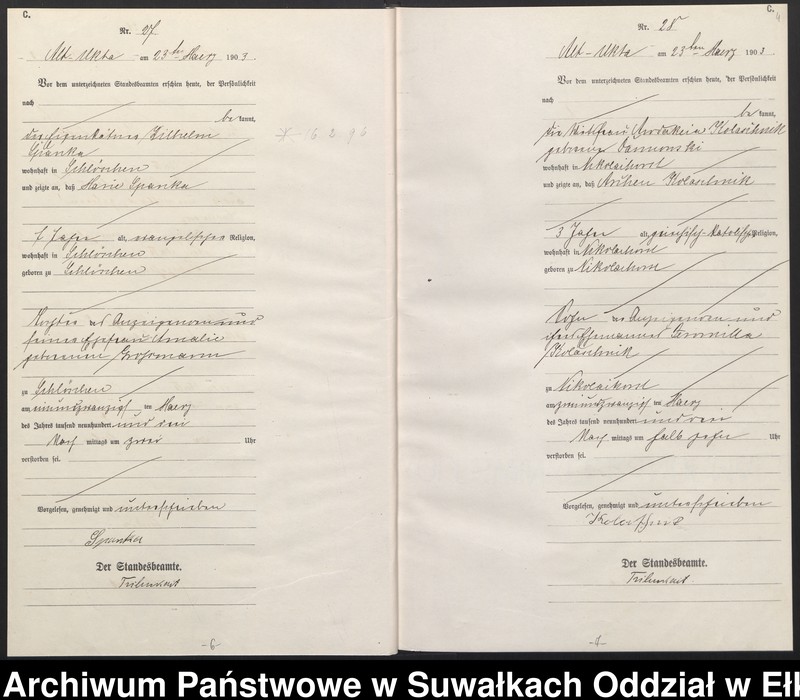 C.
Nr. 27
Alt-Ukta am 23ten Maerz 1903
Vor dem unterzeichneten Standesbeamten erschien heute, der Persönlichkeit
nach
bekannt,
der Eigenkätner Wilhelm
Spanka
wohnhaft in Schlösschen
und zeigte an, daß Marie Spanka
7 Jahre alt, evangelischer Religion,
wohnhaft in Schlösschen
geboren zu Schlösschen
Tochter des Anzeigenden und
seiner Ehefrau Amalie
geborenen
zu Schlösschen
am einundzwanzigsten Maerz
des Jahres tausend neunhundert und drei
Nachmittags um zwei Uhr
verstorben sei.
Vorgelesen, genehmigt und unterschrieben
Spanka
Der Standesbeamte.
* 16. 2. 96
-6-
C.
4
Nr. 28
Alt-Ukta am 23ten Maerz 1903
Vor dem unterzeichneten Standesbeamten erschien heute, der Persönlichkeit
nach
bekannt,
die Wirthfrau
geborene
wohnhaft in Nikolaihorst
und zeigte an, daß
3 Jahre alt, griechisch-katolischer Religion,
wohnhaft in Nikolaihorst
geboren zu Nikolaihorst
Sohn der Anzeigenden und
ihres Ehemannes
zu Nikolaihorst
am zweiundzwanzigsten Maerz
des Jahres tausend neunhundert und drei
Nachmittags um halb zehn Uhr
verstorben sei.
Vorgelesen, genehmigt und unterschrieben
Der Standesbeamte.
Archiwum Państwowe w Suwałkach Oddział w Eł